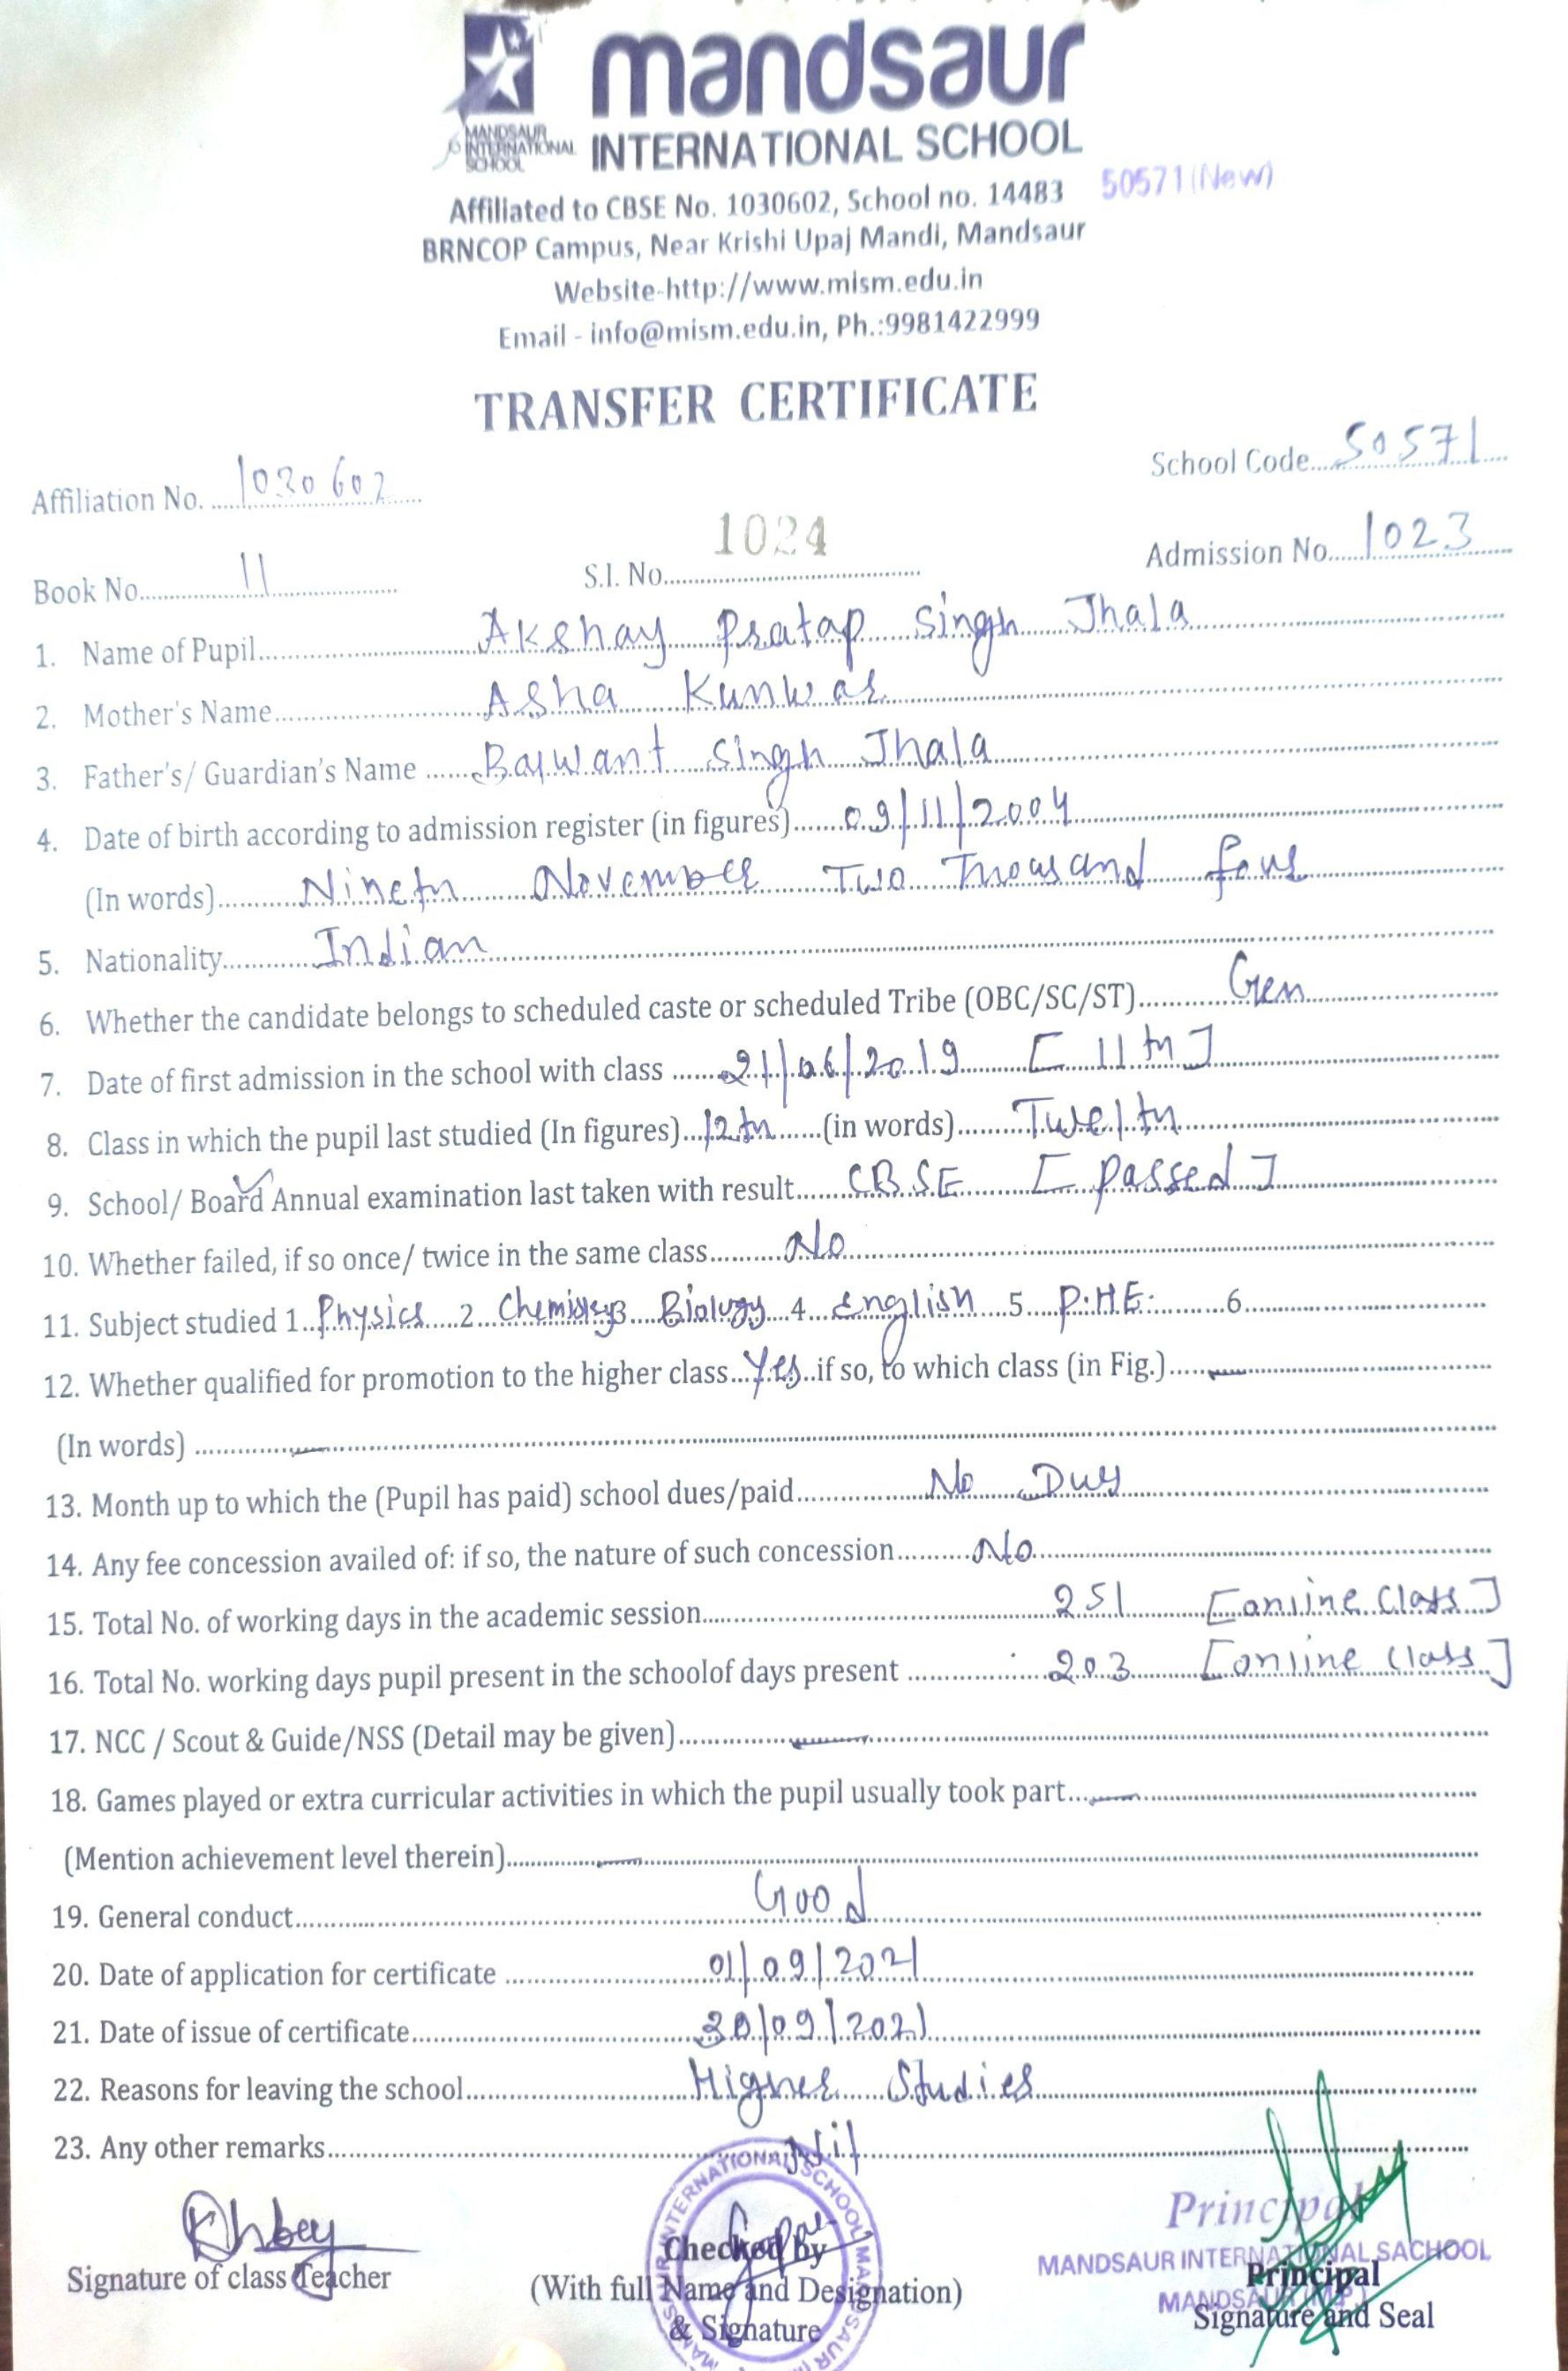 mandsaur
INTERNATIONAL SCHOOL
MANDSAUR
INTERNATIONAL
SCHOOL
Affiliated to CBSE No. 1030602, School no. 14483 50571(New)
BRNCOP Campus, Near Krishi Upaj Mandi, Mandsaur
Website-http://www.mism.edu.in
Email - info@mism.edu.in, Ph.:9981422999
TRANSFER CERTIFICATE
Affiliation No. 1030602 School Code 50571
Book No. 11 S.I. No. 1024 Admission No. 1023
1. Name of Pupil Akshay Pratap Singh Jhala
2. Mother's Name Asha Kunwar
3. Father's/ Guardian's Name Balwant Singh Jhala
4. Date of birth according to admission register (in figures) 09/11/2004
(In words) Nineth November Two Thousand four
5. Nationality Indian
6. Whether the candidate belongs to scheduled caste or scheduled Tribe (OBC/SC/ST) Gen
7. Date of first admission in the school with class 21/06/2019 [11th]
8. Class in which the pupil last studied (In figures) 12th (in words) Twelth
9. School/ Board Annual examination last taken with result CBSE [passed]
10. Whether failed, if so once/ twice in the same class No
11. Subject studied 1 Physics 2 Chemistry 3 Biology 4 English 5 P.HE. 6
12. Whether qualified for promotion to the higher class Yes if so, to which class (in Fig.) —
(In words) —
13. Month up to which the (Pupil has paid) school dues/paid No Dues
14. Any fee concession availed of: if so, the nature of such concession No
15. Total No. of working days in the academic session 251 [online class]
16. Total No. working days pupil present in the schoolof days present 203 [online class]
17. NCC / Scout & Guide/NSS (Detail may be given) —
18. Games played or extra curricular activities in which the pupil usually took part —
(Mention achievement level therein) —
19. General conduct Good
20. Date of application for certificate 01/09/2021
21. Date of issue of certificate 30/09/2021
22. Reasons for leaving the school Higher Studies
23. Any other remarks Nil
Principal
MANDSAUR INTERNATIONAL SACHOOL
Signature of class Teacher
Checked by
(With full Name and Designation)
& Signature
Principal
Signature and Seal